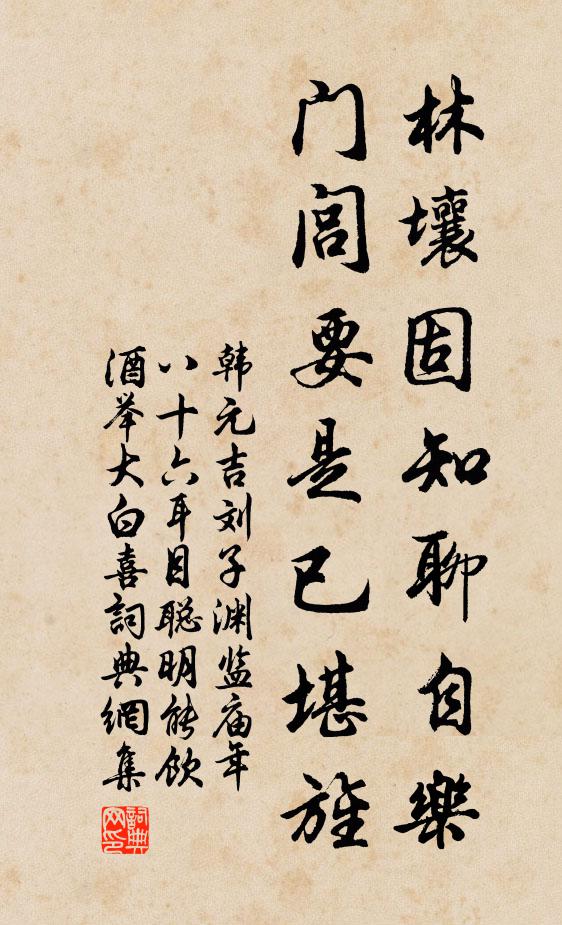 林壤固知聊自樂
门闾要是已堪旌
韩元吉刘子渊监庙年
八十六耳目聪明能饮
酒举大白喜詞典網集
詞典
网印